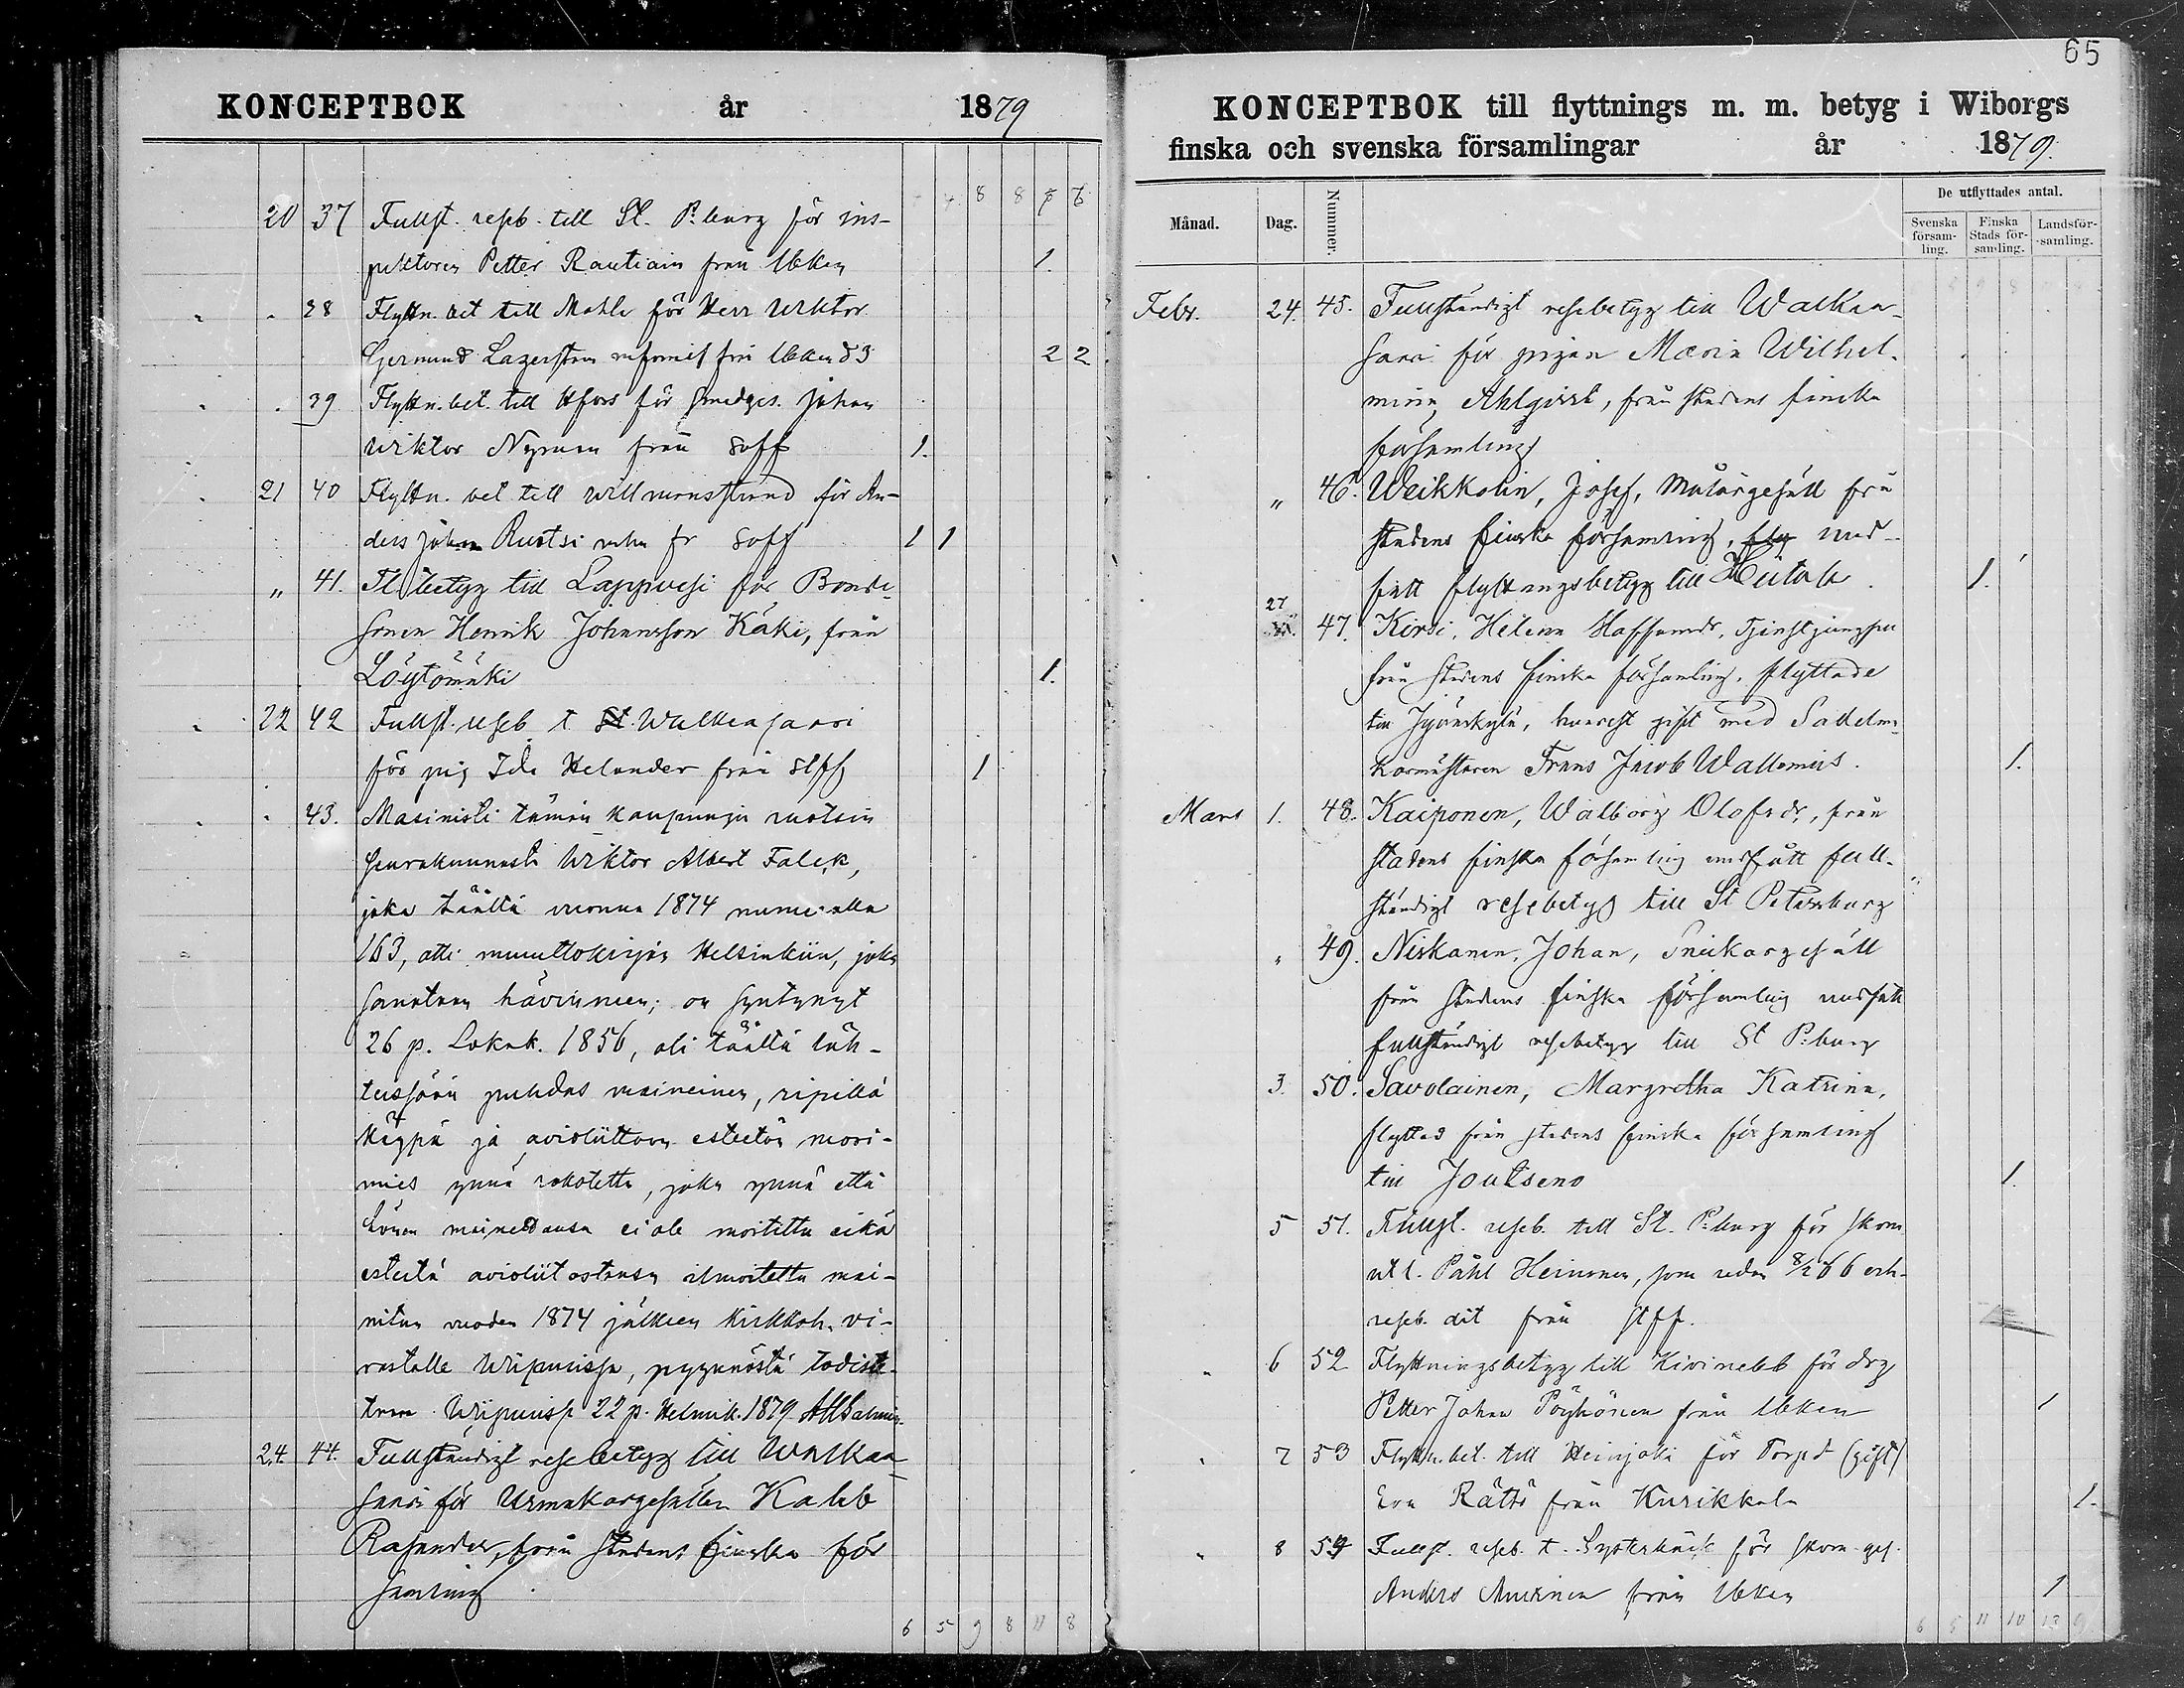 KONCEPTBOK år 1879
20 37 Fullst. reseb. till St. P:burg för ins-
pektoren Petter Rautiain från Ubken 1.
" " 38 Flyttn. bet till Mohla för Herr Wiktor
Germund Lagerstam 2 2
" " 39 Flyttn. bet. till Hfors för Smedges. Johan
Wiktor Nyman från Soff 1.
" 21 40 Flyttn. bet till Willmanstrand för An-
ders Johan Ruotsi fr Soff 1 1
" 41. Fl betyg till Lappvesi för Bonde-
sonen Henrik Johansson Käki, från
Löytömäki 1.
" 22 42 Fullst. reseb t St. Walkeasaari
för pig Ida Helander från Stff 1
" " 43. Masinisti tämän kaupungin ruotsin
seurakunnasta Wiktor Albert Falck,
joka täältä vuonna 1874 numerolla
163, otti muuttokirjan Helsinkiin, joka
sanotaan hävinneen; on syntynyt
26 p. Lokak. 1856, oli täältä läh-
teissään puhdas maineinen, ripillä
käypä ja avioliittoon esteetön nuori-
mies ynnä rokotettu, joka ynnä että
hänen mainettansa ei ole moitittu eikä
estettä avioliitostansa ilmoitettu mai-
nitun vuoden 1874 jälkeen Kirkkoh. vi-
rastolle Wiipurissa, pyynnöstä todiste-
taan. Wiipurissa 22 p. Helmik. 1879
24. 44. Fullständigt resebetyg till Walkea-
saari för Urmakargesällen Kaleb
Rasander, från Stadens finska för
samling
6 5 9 8 11 8
65
KONCEPTBOK till flyttnings m. m. betyg i Wiborgs
finska och svenska församlingar år 1879.
Månad. Dag. Nummer. De utflyttades antal.
Svenska församling. Finska Stads församling. Landsförsamling.
Febr. 24. 45. Fullständigt resebetyg till Walkea-
saari för pigan Maria Wilhel-
mina Ahlqvist, från stadens finska
församling
" 46. Weikkolin, Josef, Målaregesäll frå
stadens finska församling, fly und-
fått flyttningsbetyg till Hiitola. 1.
27 47. Kirsi, Helena Staffansdr, Tjenstjungfru
från stadens finska församling, flyttade
till Jyväskylä, hvarest gift med Sadelma-
karmästaren Frans Jacob Wallenius. 1.
Mars 1. 48. Kaiponen, Walborg Olofsdr, från
stadens finska församling undfått full-
ständigt resebetyg till St Petersburg
" 49. Niskanen, Johan, Snickargesäll
från stadens finska församling undfått
fullständigt resebetyg till St P:burg
3. 50. Savolainen, Margretha Katrina,
flyttad från stadens finska församling
till Joutseno 1.
5 51. Fullst. reseb. till St. P:burg för skom
Påhl Heinonen, som redan 8/2 66 erh-
reseb. dit från Stff.
" 6 52 Flyttningsbetyg till Kivinebb för drg
Petter Johan Pöyhönen från Ubken 1
" 7 53 Flyttn. bet. till Heinjoki för Torpd (gift)
Eva Rättö från Kurikkala 1.
" 8 54 Fullst. reseb. t. Systerbäck för skom. ges.
Anders Amerinen från Ubken 1
6 5 11 10 13 9